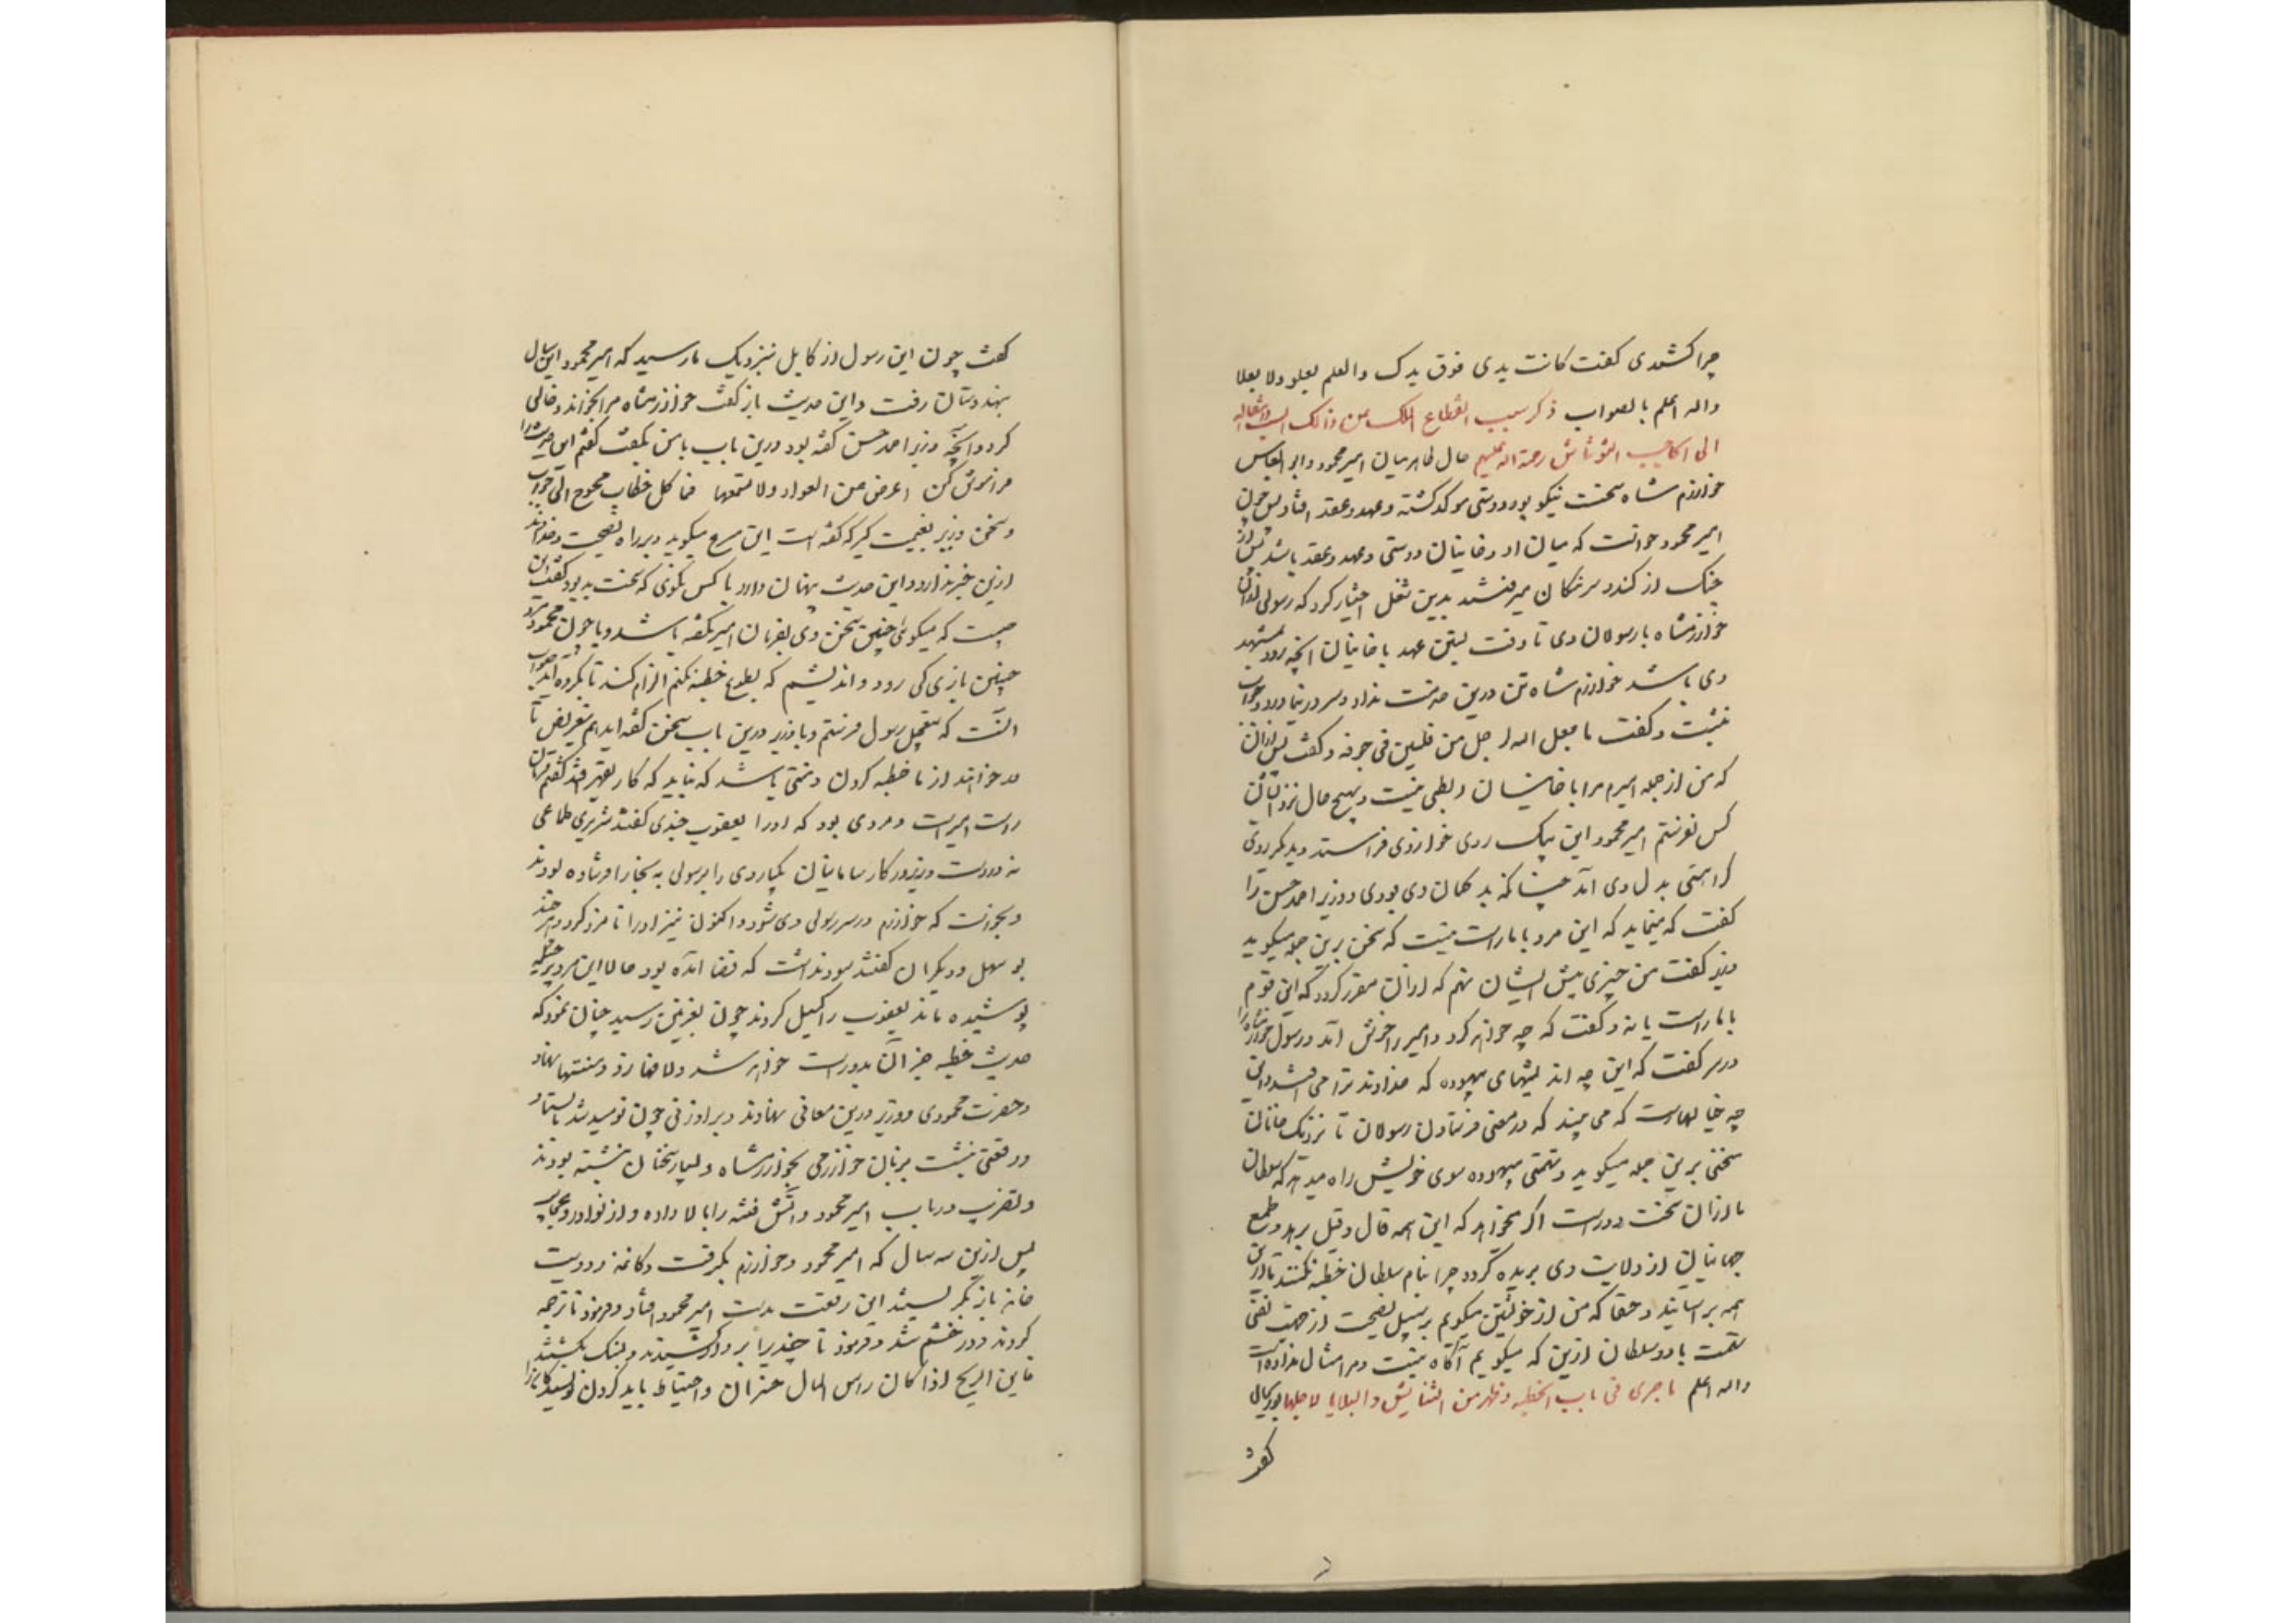 چرا کشتدی کفت کانت یدی فوق یدک والعلم یعلو ولا یعلا
واله اعلم بالصواب ذکر سبب انقطاع الملک من ذالک البیت وانتقاله
الی الحاجب التونتاش رحمة اله علیهم حال ظاهر میان امیر محمود وابو العباس
خوارزم شاه سخت نیکو بود ودوستی موکد کشته وعهد وعقد افتاد پس چون
امیر محمود خواست که میان او وخانیان دوستی وعهد وعقد باشد پس از
جنک از کند وسرهنکان میرفتند بدین شغل اختیار کرد که رسولی از ان
خوارزمشاه با رسولان وی تا وقت بستن عهد با خانیان انچه رود بمشهد
وی باشد خوارزم شاه تن درین حدیث نداد وسر در نیاورد وجواب
نبشت وکفت ما جعل اله لرجل من قلبین فی جوفه وکفت پس از ان
که من از جمله امیرم مرا با خانیان ربطی نیست وبهیچ حال نزد ایشان
کس نفرستم امیر محمود این بیک روی خوازوی فراستد وبدیکر روی
کراهتی بدل وی آمد چنانکه بد کمان وی بودی ووزیر احمد حسن را
کفت که مینماید که این مرد با ما راست نیست که سخن برین جمله میکوید
وزیر کفت من چیزی پیش ایشان نهم که ازان مقرر کردد که این قوم
با ما راست یا نه وکفت که چه خواهم کرد وامیر را خوش آمد ورسول خوارزمشاه را
در سر کفت که این چه اندیشهای بیهوده که خداوند ترا می افتد واین
چه خیالهاست که می بیند که در معنی فرستادن رسولان تا نزدیک خانان
سخنی برین جمله میکوید وتهمتی بیهوده سوی خویش راه میدهد که سلطان
ما ازان سخت دورست اکر بخواهد که این همه قال وقیل برهد وطمع
جهانیان از ولایت وی بریده کردد چرا بنام سلطان خطبه نکند تا ازین
همه براسایند وحقا که من از خویشتن میکویم بر سبیل نصیحت از جهت نفی
تهمت با او وسلطان ازین که میکویم آکاه نیست ومرا مثال نداده است
واله اعلم ما جری فی باب الخطبه وظهر من التشاویش والبلایا لاجلها بوریحان
کفت
کفت چون این رسول از کابل بنزدیک ما رسید که امیر محمود این سال
بهندوستان رفت واین حدیث باز کفت خوارزمشاه مرا بخواند وخالی
کرد وانچه وزیر احمد حسن کفته بود درین باب با من بکفت کفتم این حدیث را
فراموش کن اعرض عن العوراء ولا تسمعها فما کل خطاب محوج الی جواب
وسخن وزیر بغنیمت کیر که کفته است این بتبرع میکوید وبر راه نصیحت وخداوندش
ازین خبر ندارد واین حدیث پنهان دارد با کس نکوی که سخت بد بود کفت این
چیست که میکوئی چنین سخن وی بفرمان امیر نکفته باشد وبا چون محمود مرد
چنین بازی کی رود واندیشم که بطوع خطبه نکنم الزام کند تا کرده آید صواب
انست که بتعجیل رسول فرستیم وبا وزیر درین باب سخن کفته اید هم بتعریض تا
در خواهند از ما خطبه کردن ومنتی باشد که نباید که کار بقهر افتد کفتم فرمان
راست امیر است ومردی بود که او را یعقوب جندی کفتند شریری طماعی
نه درست وبروزکار سامانیان یکبار وی را برسولی به بخارا فرستاده بودند
وبخواست که خوارزم در سر رسولی وی شود واکنون نیز او را نامزد کرد وهر چند
بو سهل ودیکران کفتند سود نداشت که قضا آمده بود حالا این مرد پر حیله
پوشیده ماند یعقوب را کسیل کردند چون بغزنین رسید چنان نمود که
حدیث خطبه جز ان بدو راست خواهد شد ولافها زد ومنتها نهاد
وحضرت محمودی ووزیر درین معانی نهادند ویرا وزنی چون نومید شد بایستاد
ورقعتی نبشت بزبان خوارزمی بخوارزمشاه وبسیار سخنان نبشته بودند
وتضریب در باب امیر محمود واتش فتنه را بالا داده واز نوادر وعجایب
پس ازین سه سال که امیر محمود وخوارزم بکرفت وکاغذ ودویت
خانه باز نکریستند این رقعت بدست امیر محمود افتاد وفرمود تا ترجمه
کردند ودر خشم شد وفرمود تا جندیرا بر دار کشیدند وبسنک بکشتند
فاین الربح اذا کان راس المال خسران واحتیاط باید کردن نویسندکانرا